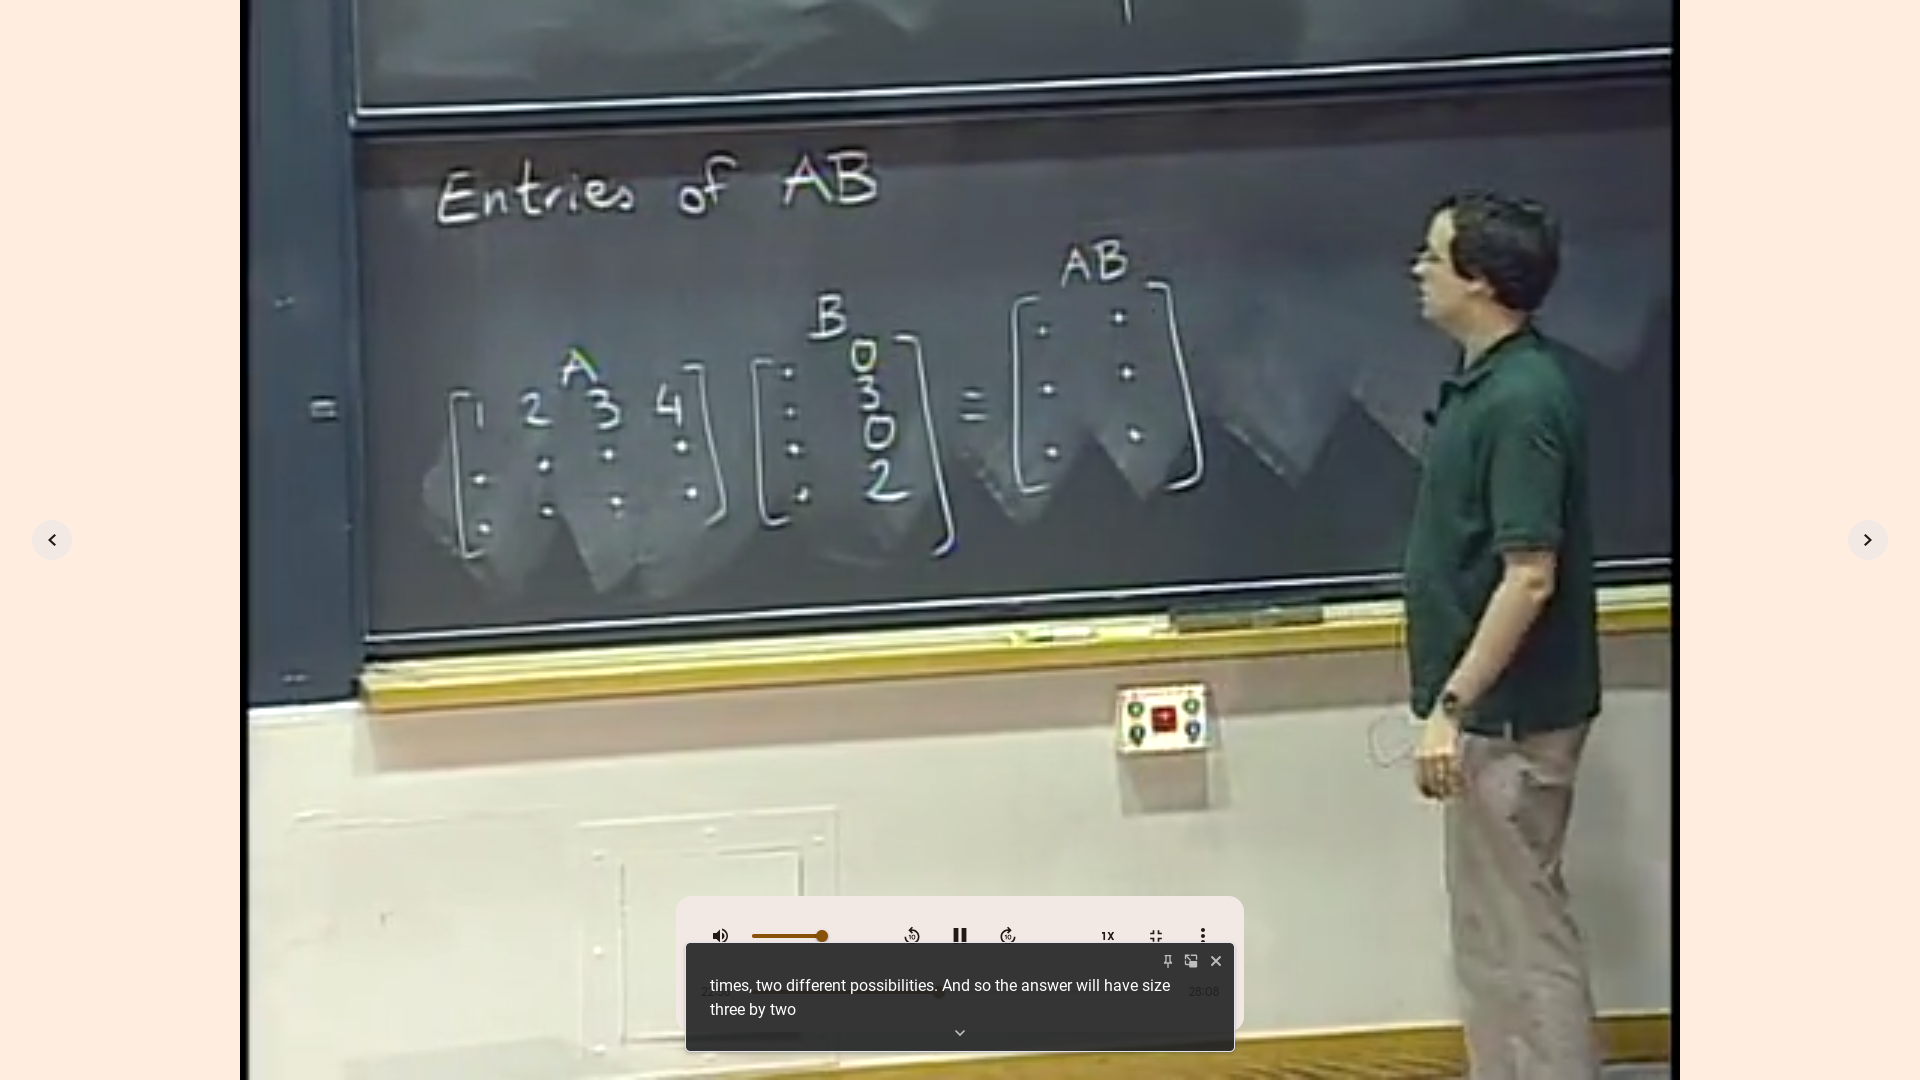 Entries of AB
A B AB
= [ 1 2 3 4 ] [ . 0 ] = [ . . ]
. . . . . 3 . .
. . . . . 0 . .
. 2
1X
28:08
times, two different possibilities. And so the answer will have size
three by two